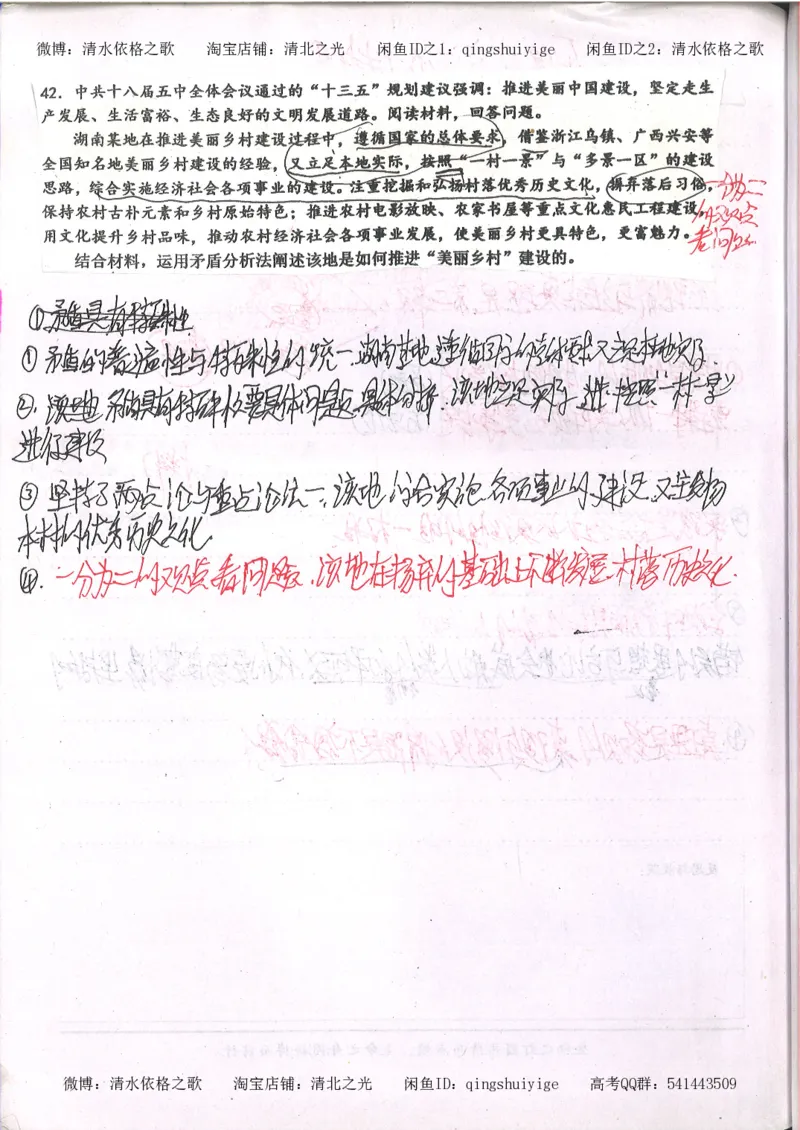 微博：清水依格之歌 淘宝店铺：清北之光 闲鱼ID之1：qingshuiyige 闲鱼ID之2：清水依格之歌
42．中共十八届五中全体会议通过的“十三五”规划建议强调：推进美丽中国建设，坚定走生
产发展、生活富裕、生态良好的文明发展道路。阅读材料，回答问题。
湖南某地在推进美丽乡村建设过程中，遵循国家的总体要求，借鉴浙江乌镇、广西兴安等
全国知名地美丽乡村建设的经验，又立足本地实际，按照“一村一景”与“多景一区”的建设
思路，综合实施经济社会各项事业的建设。注重挖掘和弘扬村落优秀历史文化，摒弃落后习俗，
保持农村古朴元素和乡村原始特色；推进农村电影放映、农家书屋等重点文化惠民工程建设，
用文化提升乡村品味，推动农村经济社会各项事业发展，使美丽乡村更具特色，更富魅力。
一分为二
的观点
看问题
结合材料，运用矛盾分析法阐述该地是如何推进“美丽乡村”建设的。
①矛盾具有特殊性
① 矛盾的普遍性与特殊性的统一，湖南某地遵循国家的总体要求又立足本地实际．
②．该地 矛盾具有特殊性要具体问题具体分析．该地立足实际，按照“一村一景”
进行建设
③ 坚持了两点论与重点论统一，该地综合实施各项事业的建设，又注重弘扬
村的优秀历史文化．
④．一分为二的观点看问题，该地在扬弃的基础上不断发展村落历史文化．
微博：清水依格之歌 淘宝店铺：清北之光 闲鱼ID：qingshuiyige 高考QQ群：541443509